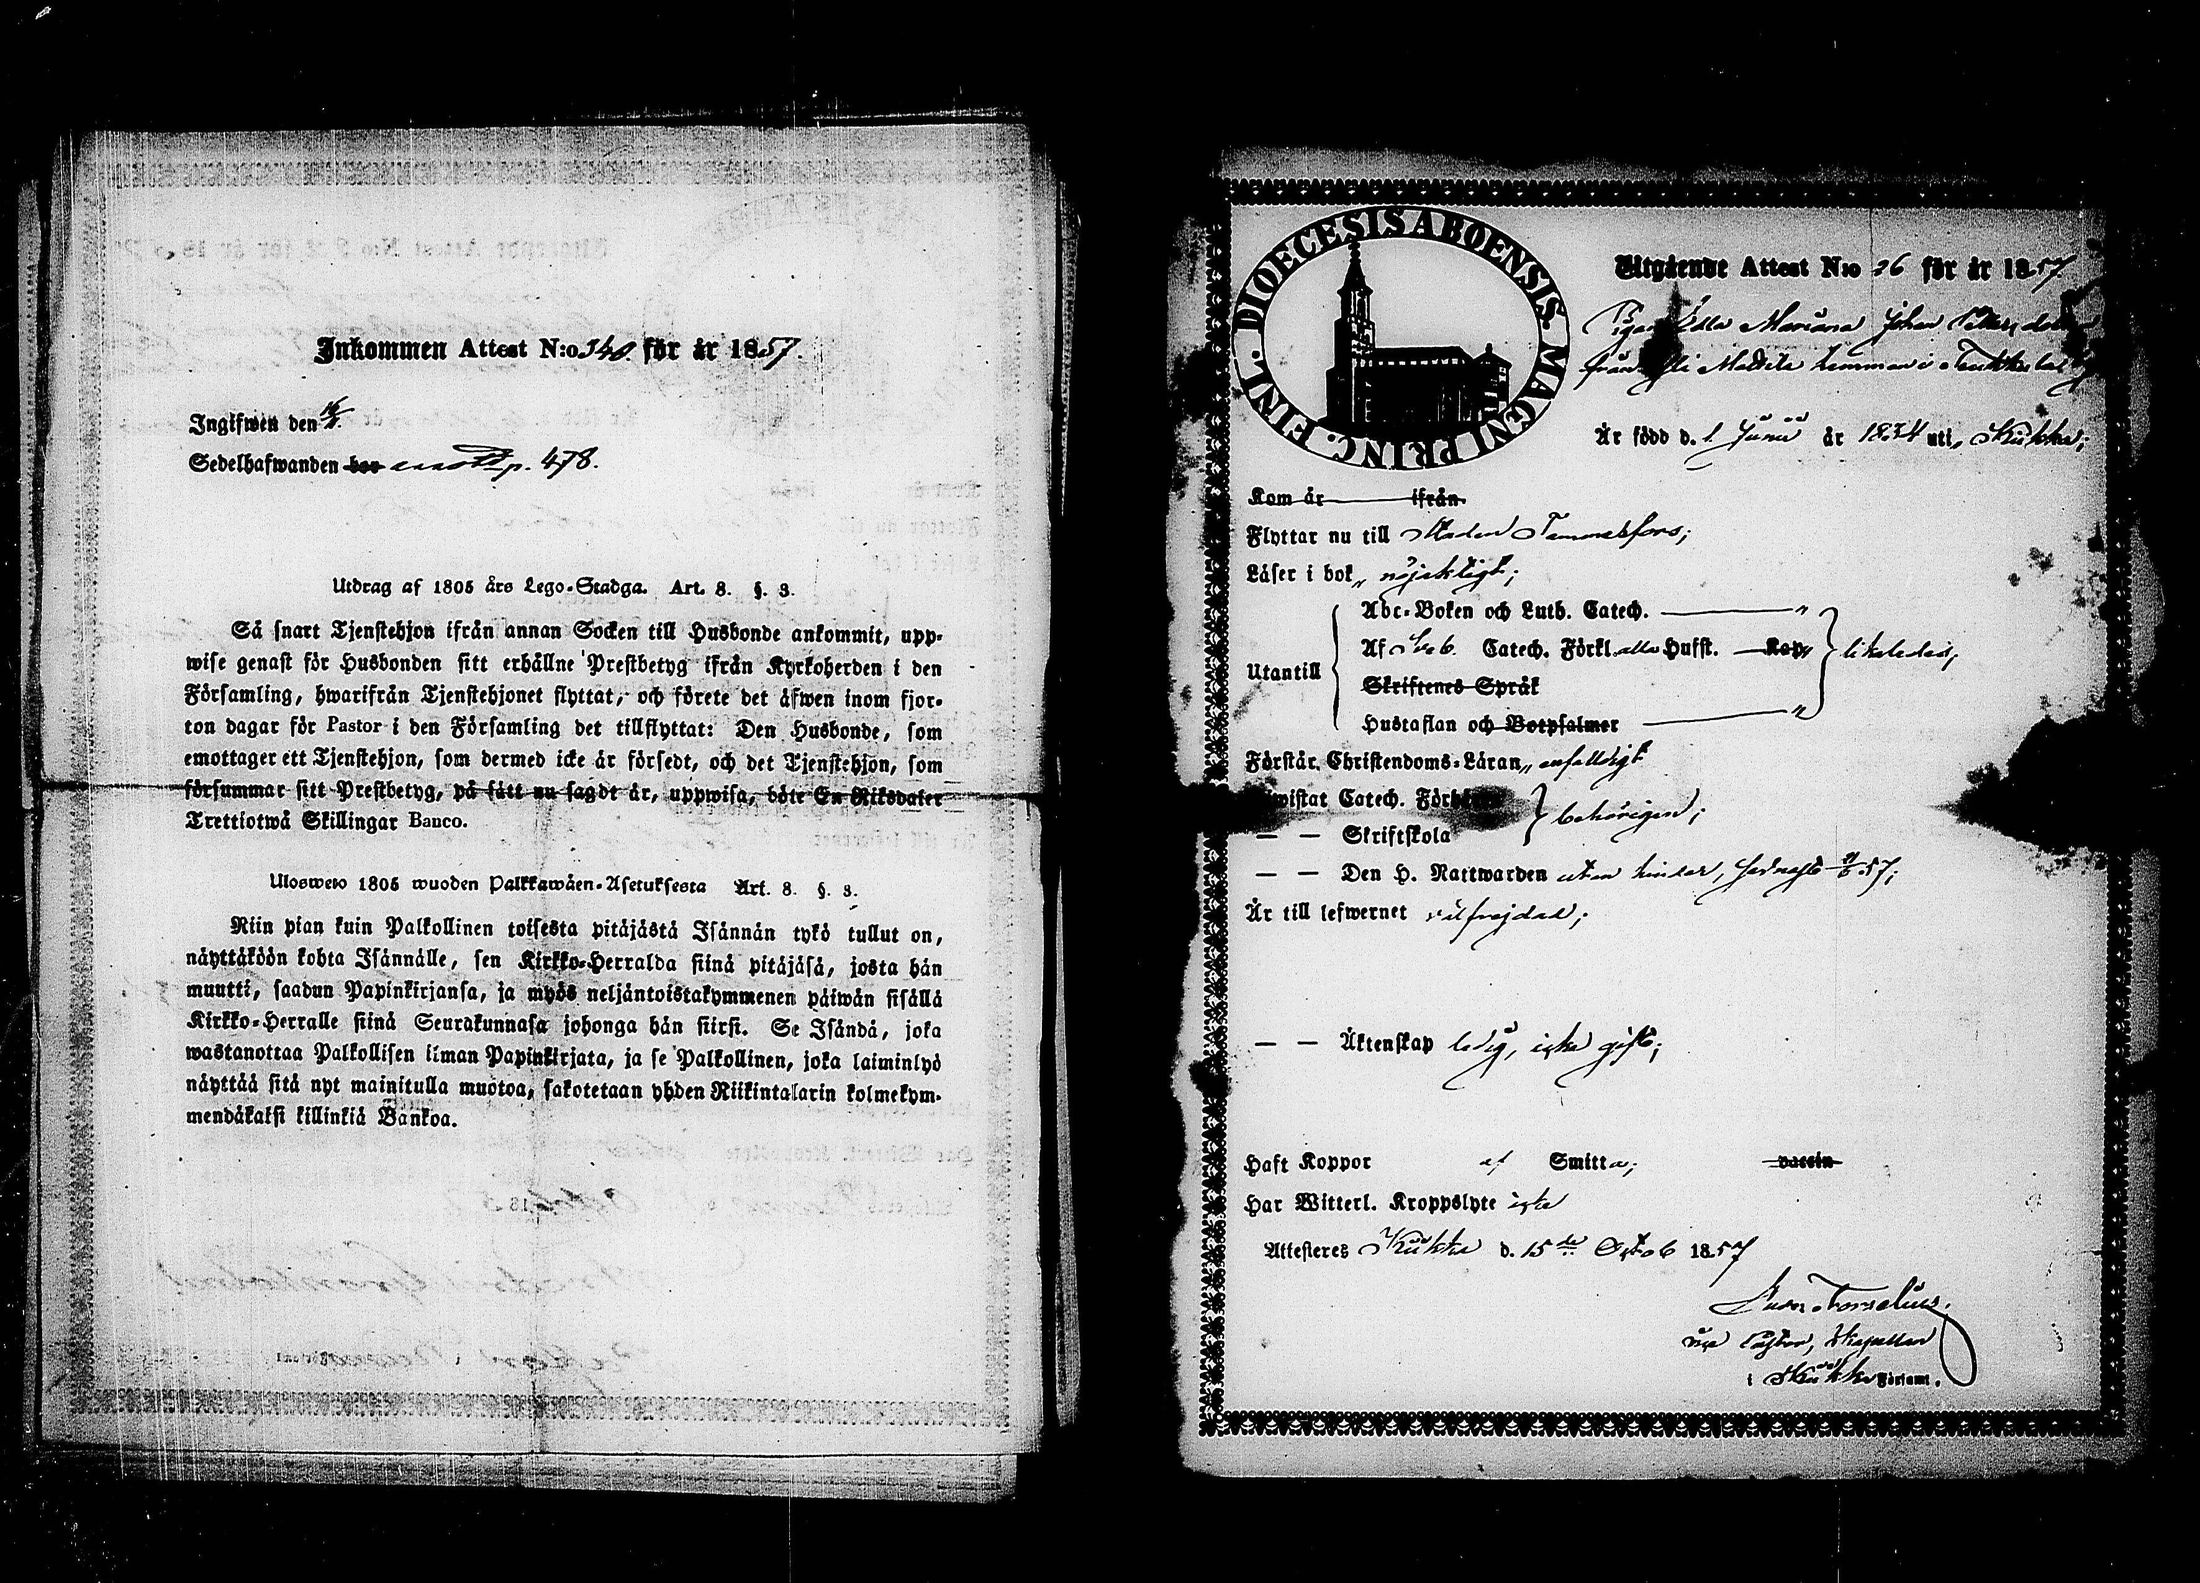 Inkommen Attest N:o 340 för år 1857.
Ingifwen den
Sedelhafwanden bor p. 478.
Utdrag af 1805 års Lego-Stadga. Art. 8. §. 3.
Så snart Tjenstehjon ifrån annan Socken till Husbonde ankommit, upp-
wise genast för Husbonden sitt erhållne Prestbetyg ifrån Kyrkoherden i den
Församling, hwarifrån Tjenstehjonet flyttat, och förete det äfwen inom fjor-
ton dagar för Pastor i den Församling det tillflyttat: Den Husbonde, som
emottager ett Tjenstehjon, som dermed icke är försedt, och det Tjenstehjon, som
försummar sitt Prestbetyg, på sätt nu sagdt är, uppwisa, böte En Riksdaler
Trettiotwå Skillingar Banco.
Ulosweto 1805 wuoden Palkkawäen-Asetuksesta Art. 8. §. 3.
Niin pian kuin Palkollinen toisesta pitäjästä Isännän tykö tullut on,
näyttäköön kohta Isännälle, sen Kirkko-Herralda siinä pitäjäsä, josta hän
muutti, saadun Papinkirjansa, ja myös neljäntoistakymmenen päiwän sisällä
Kirkko-Herralle siinä Seurakunnasa johonga hän siirsi. Se Isändä, joka
wastanottaa Palkollisen ilman Papinkirjata, ja se Palkollinen, joka laiminlyö
näyttää sitä nyt mainitulla muotoa, sakotetaan yhden Riikintalarin kolmekym-
mendäkaksi killinkiä Bankoa.
DIOECESIS ABOENSIS. MAGNI PRINC. FINL.
Utgående Attest N:o 26 för år 1857
Pigan Edla Mariana Johan
från hemman i
Är född d. 1 Junii år 1834 uti
Kom år ifrån
Flyttar nu till Staden Tammerfors;
Läser i bok nöjaktigt;
Abc-Boken och Luth. Catech. "
Af Sveb. Catech. Förkl. alla Hufst. Kap. likaledes,
Utantill
Skriftenes Språk
Hustaflan och Botpsalmer "
Förstår Christendoms-Läran enfaldigt
wistat Catech. Förhören behörigen;
— — Skriftskola
— — Den H. Nattwarden utan hinder, sednast 57;
Är till lefwernet välfrejdad;
— — Äktenskap ledig, icke gift;
Haft Koppor af Smitta; vaccin
Har Witterl. Kroppslyte icke
Attesteres d. 15de Octob 1857
vice Pastor, Kapellan
i Församl.